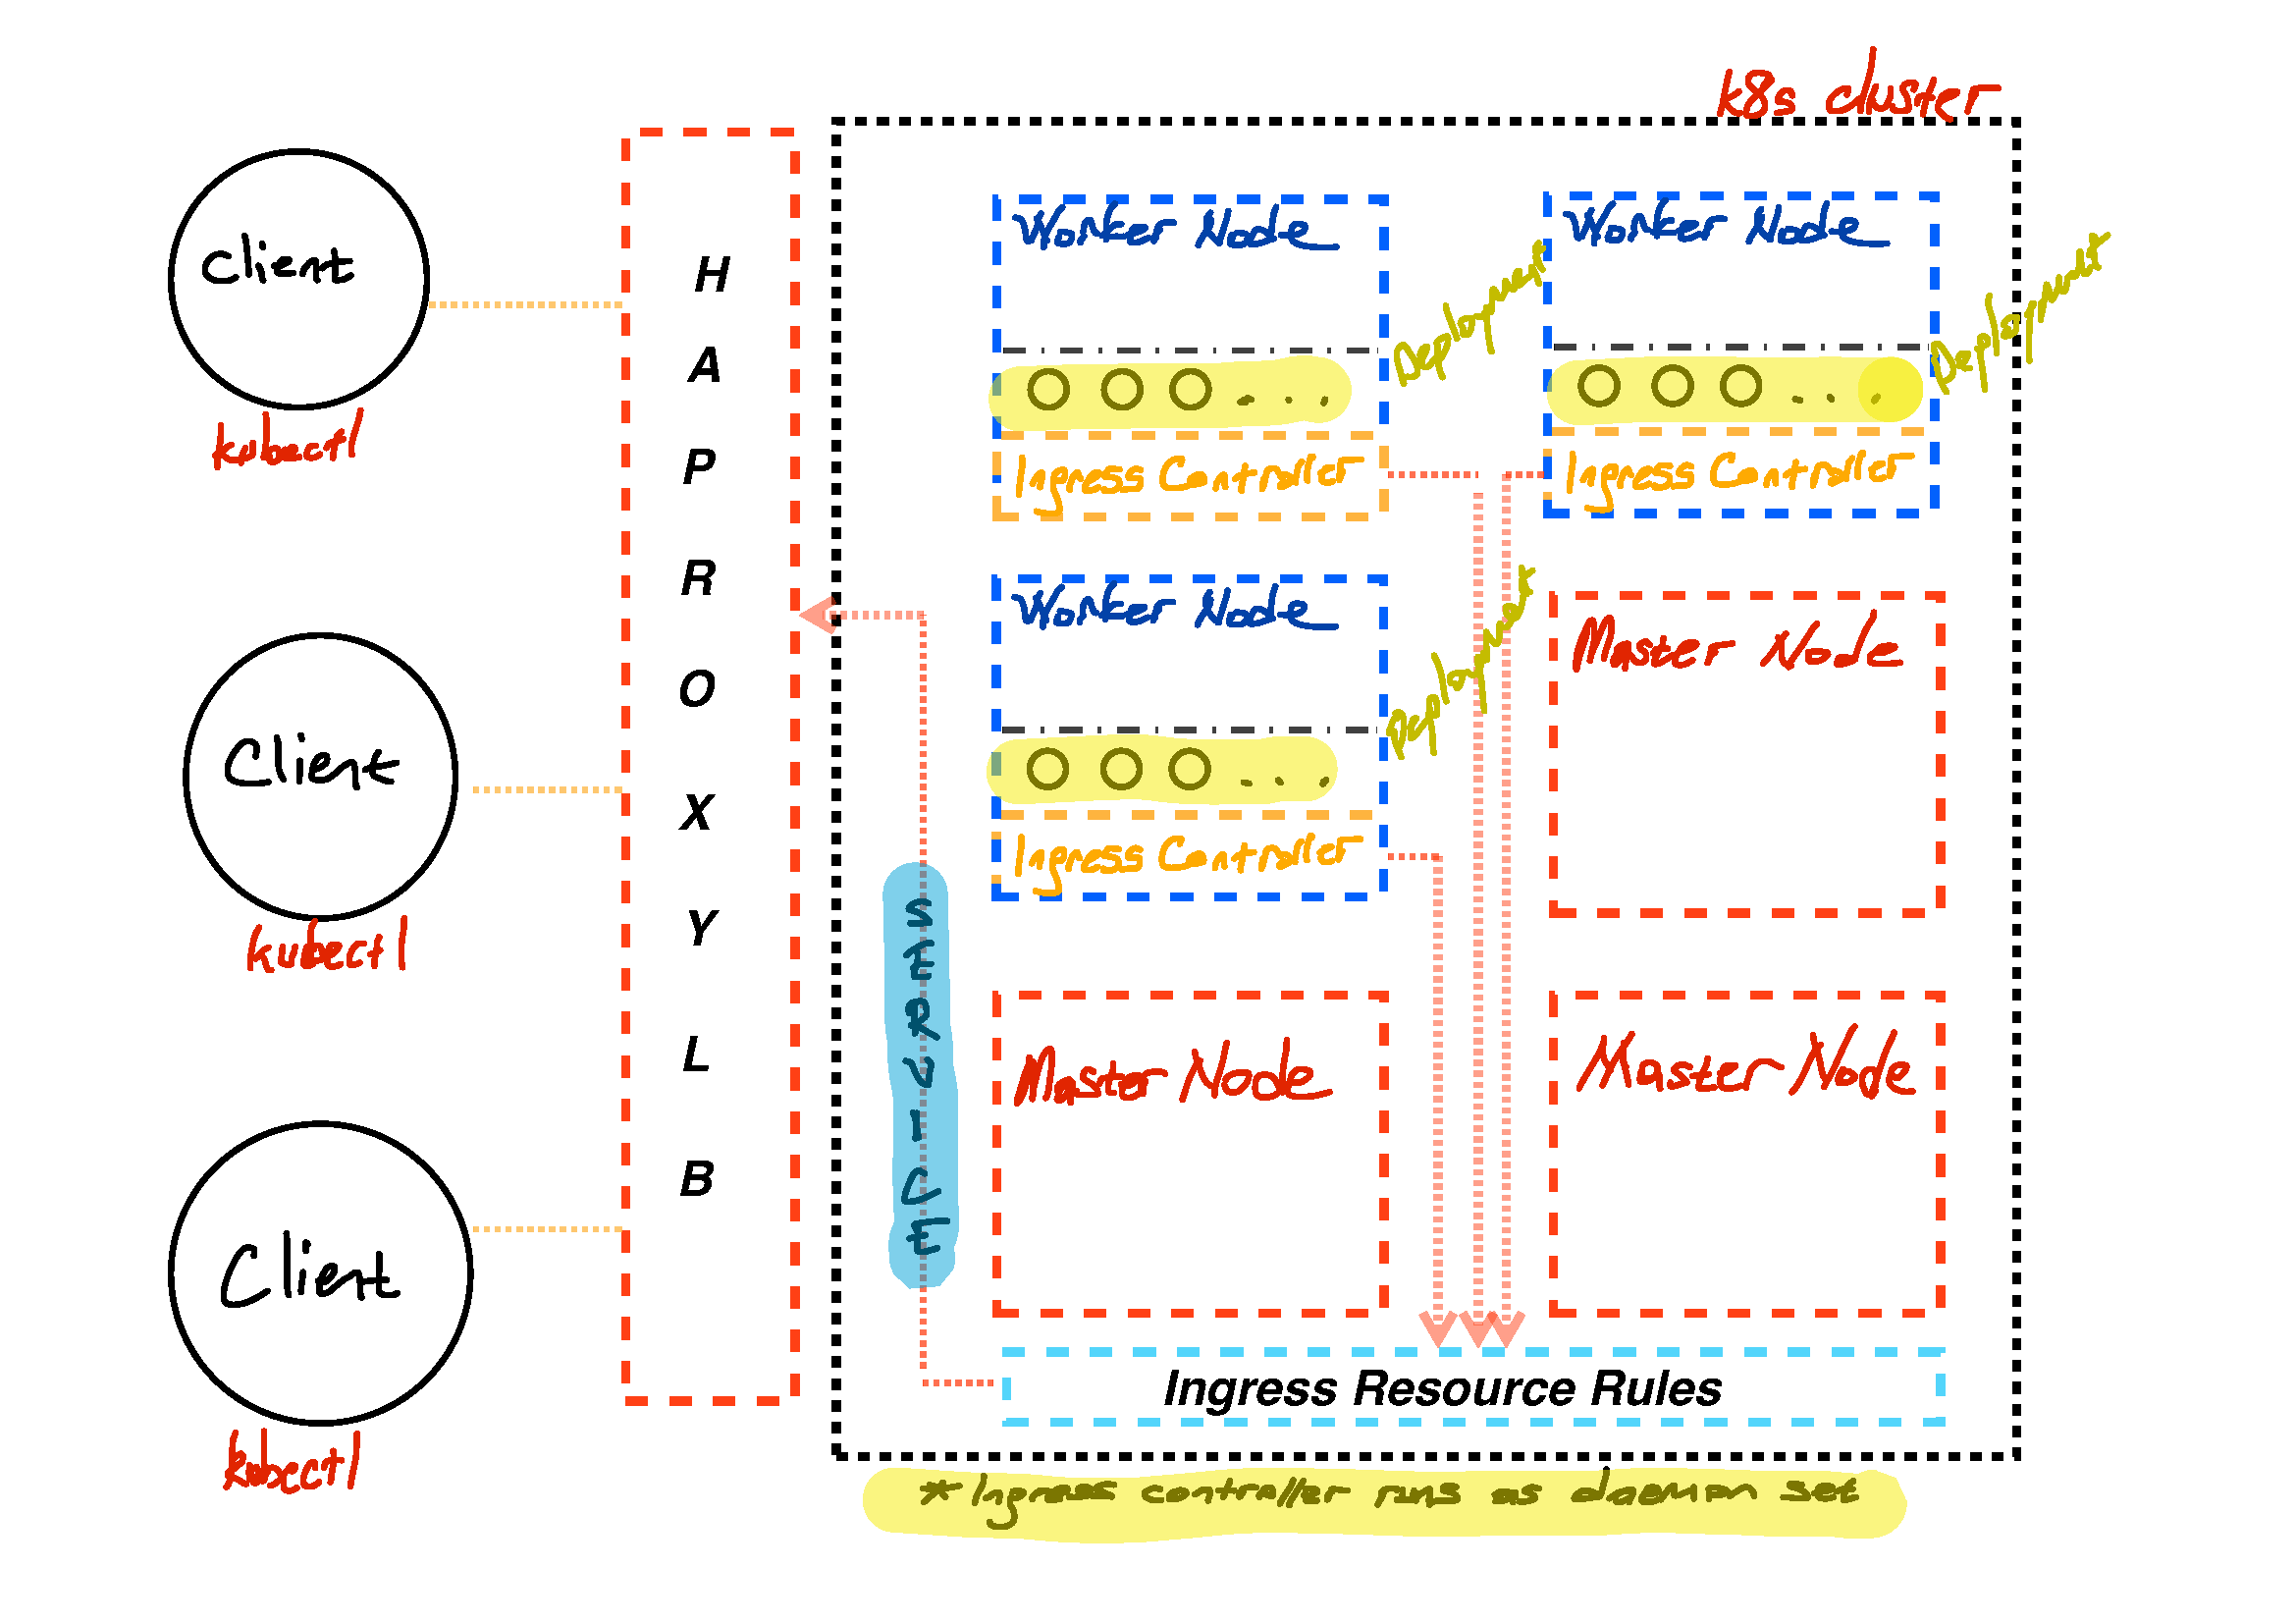 k8s cluster
Client
kubectl
Client
kubectl
Client
kubectl
H
A
P
R
O
X
Y
L
B
Worker Node
Deployment
Ingress Controller
Worker Node
Deployment
Ingress Controller
Worker Node
Deployment
Ingress Controller
Master Node
SERVICE
Master Node
Master Node
Ingress Resource Rules
* Ingress controller runs as daemon set